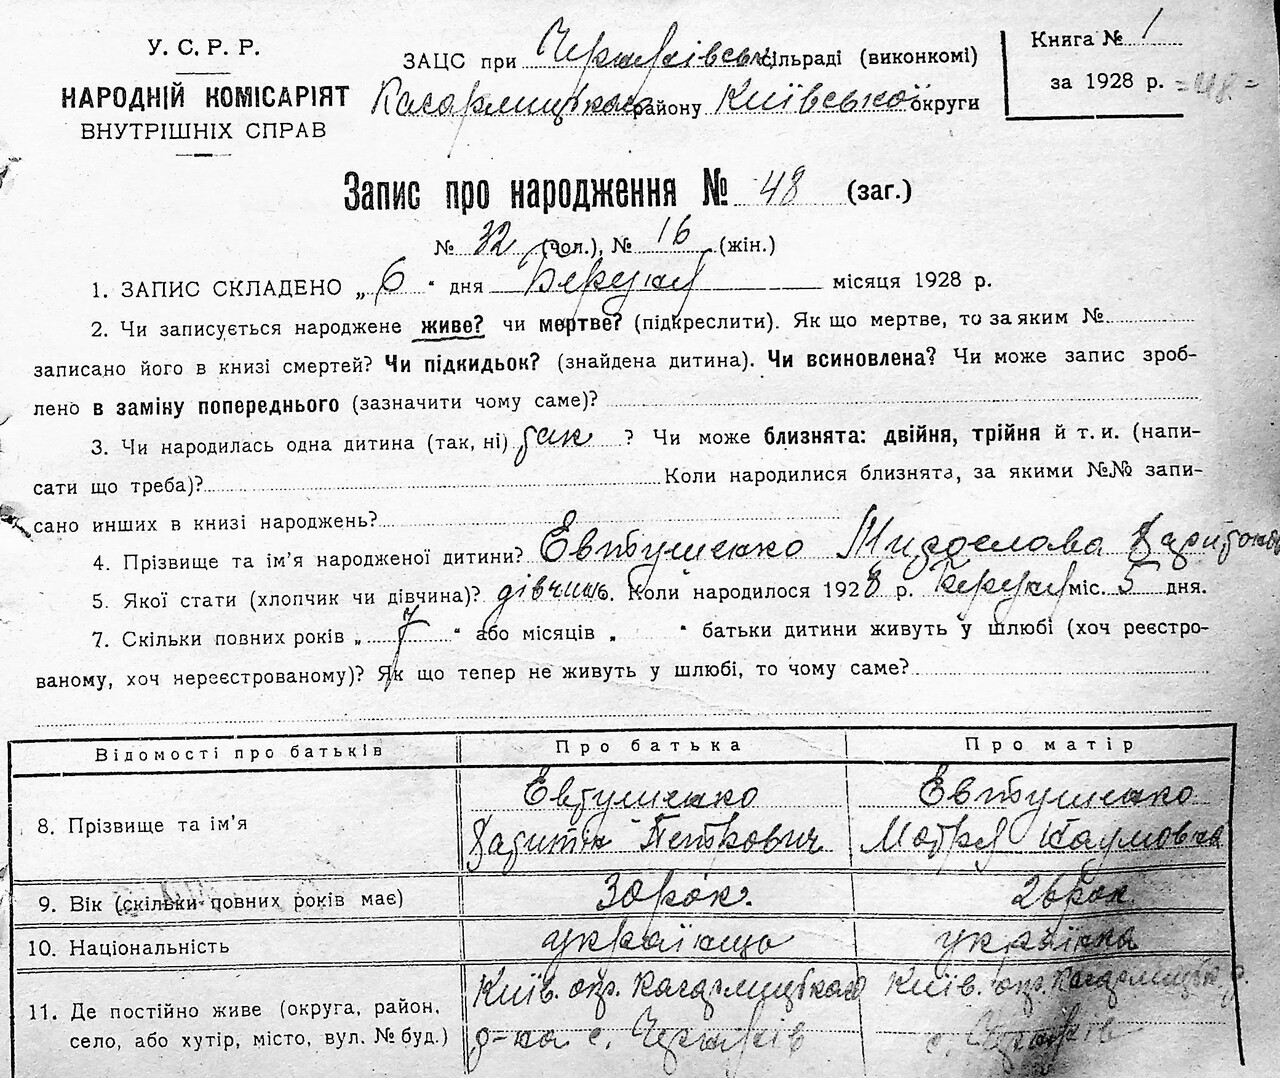 У. С. Р. Р.
НАРОДНІЙ КОМІСАРІЯТ
ВНУТРІШНІХ СПРАВ
ЗАЦС при сільраді (виконкомі)
району Київської округи
Книга № 1
за 1928 р. =48=
Запис про народження № 48 (заг.)
№ 32 (чол.), № 16 (жін.)
1. ЗАПИС СКЛАДЕНО „ 6 " дня місяця 1928 р.
2. Чи записується народжене живе? чи мертве? (підкреслити). Як що мертве, то за яким №
записано його в книзі смертей? Чи підкидьок? (знайдена дитина). Чи всиновлена? Чи може запис зроб-
лено в заміну попереднього (зазначити чому саме)?
3. Чи народилась одна дитина (так, ні) так ? Чи може близнята: двійня, трійня й т. и. (напи-
сати що треба)? Коли народилися близнята, за якими №№ запи-
сано инших в книзі народжень?
4. Прізвище та ім'я народженої дитини? Евтушенко
5. Якої стати (хлопчик чи дівчина)? дівчина. Коли народилося 1928 р. міс. 5 дня.
7. Скільки повних років „ 7 " або місяців „ " батьки дитини живуть у шлюбі (хоч реєстро-
ваному, хоч нереєстрованому)? Як що тепер не живуть у шлюбі, то чому саме?
Відомості про батьків Про батька Про матір
8. Прізвище та ім'я
Евтушенко
Харитін Петрович
Евтушенко
Мотря Наумовна
9. Вік (скільки повних років має) 30 рок. 26 рок.
10. Національність українць українка
11. Де постійно живе (округа, район,
село, або хутір, місто, вул. № буд.)
Київ. окр.
р-на с.
Київ. окр.
с.